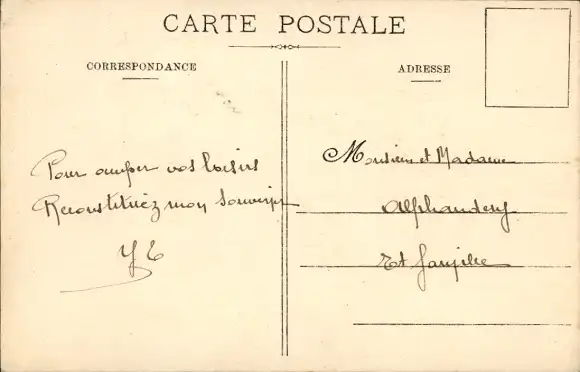 CARTE POSTALE
CORRESPONDANCE
ADRESSE
Pour occuper vos loisirs
Reconstituez mon souvenir
Monsieur et Madame
Alphandery
Et famille